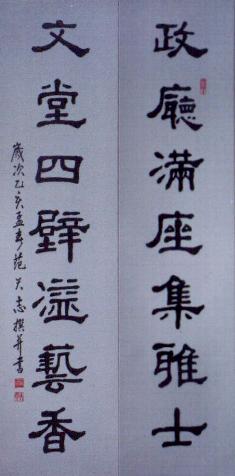 政廳滿座集雅士
文堂四壁溢藝香
歲次乙亥孟春范大志撰并書